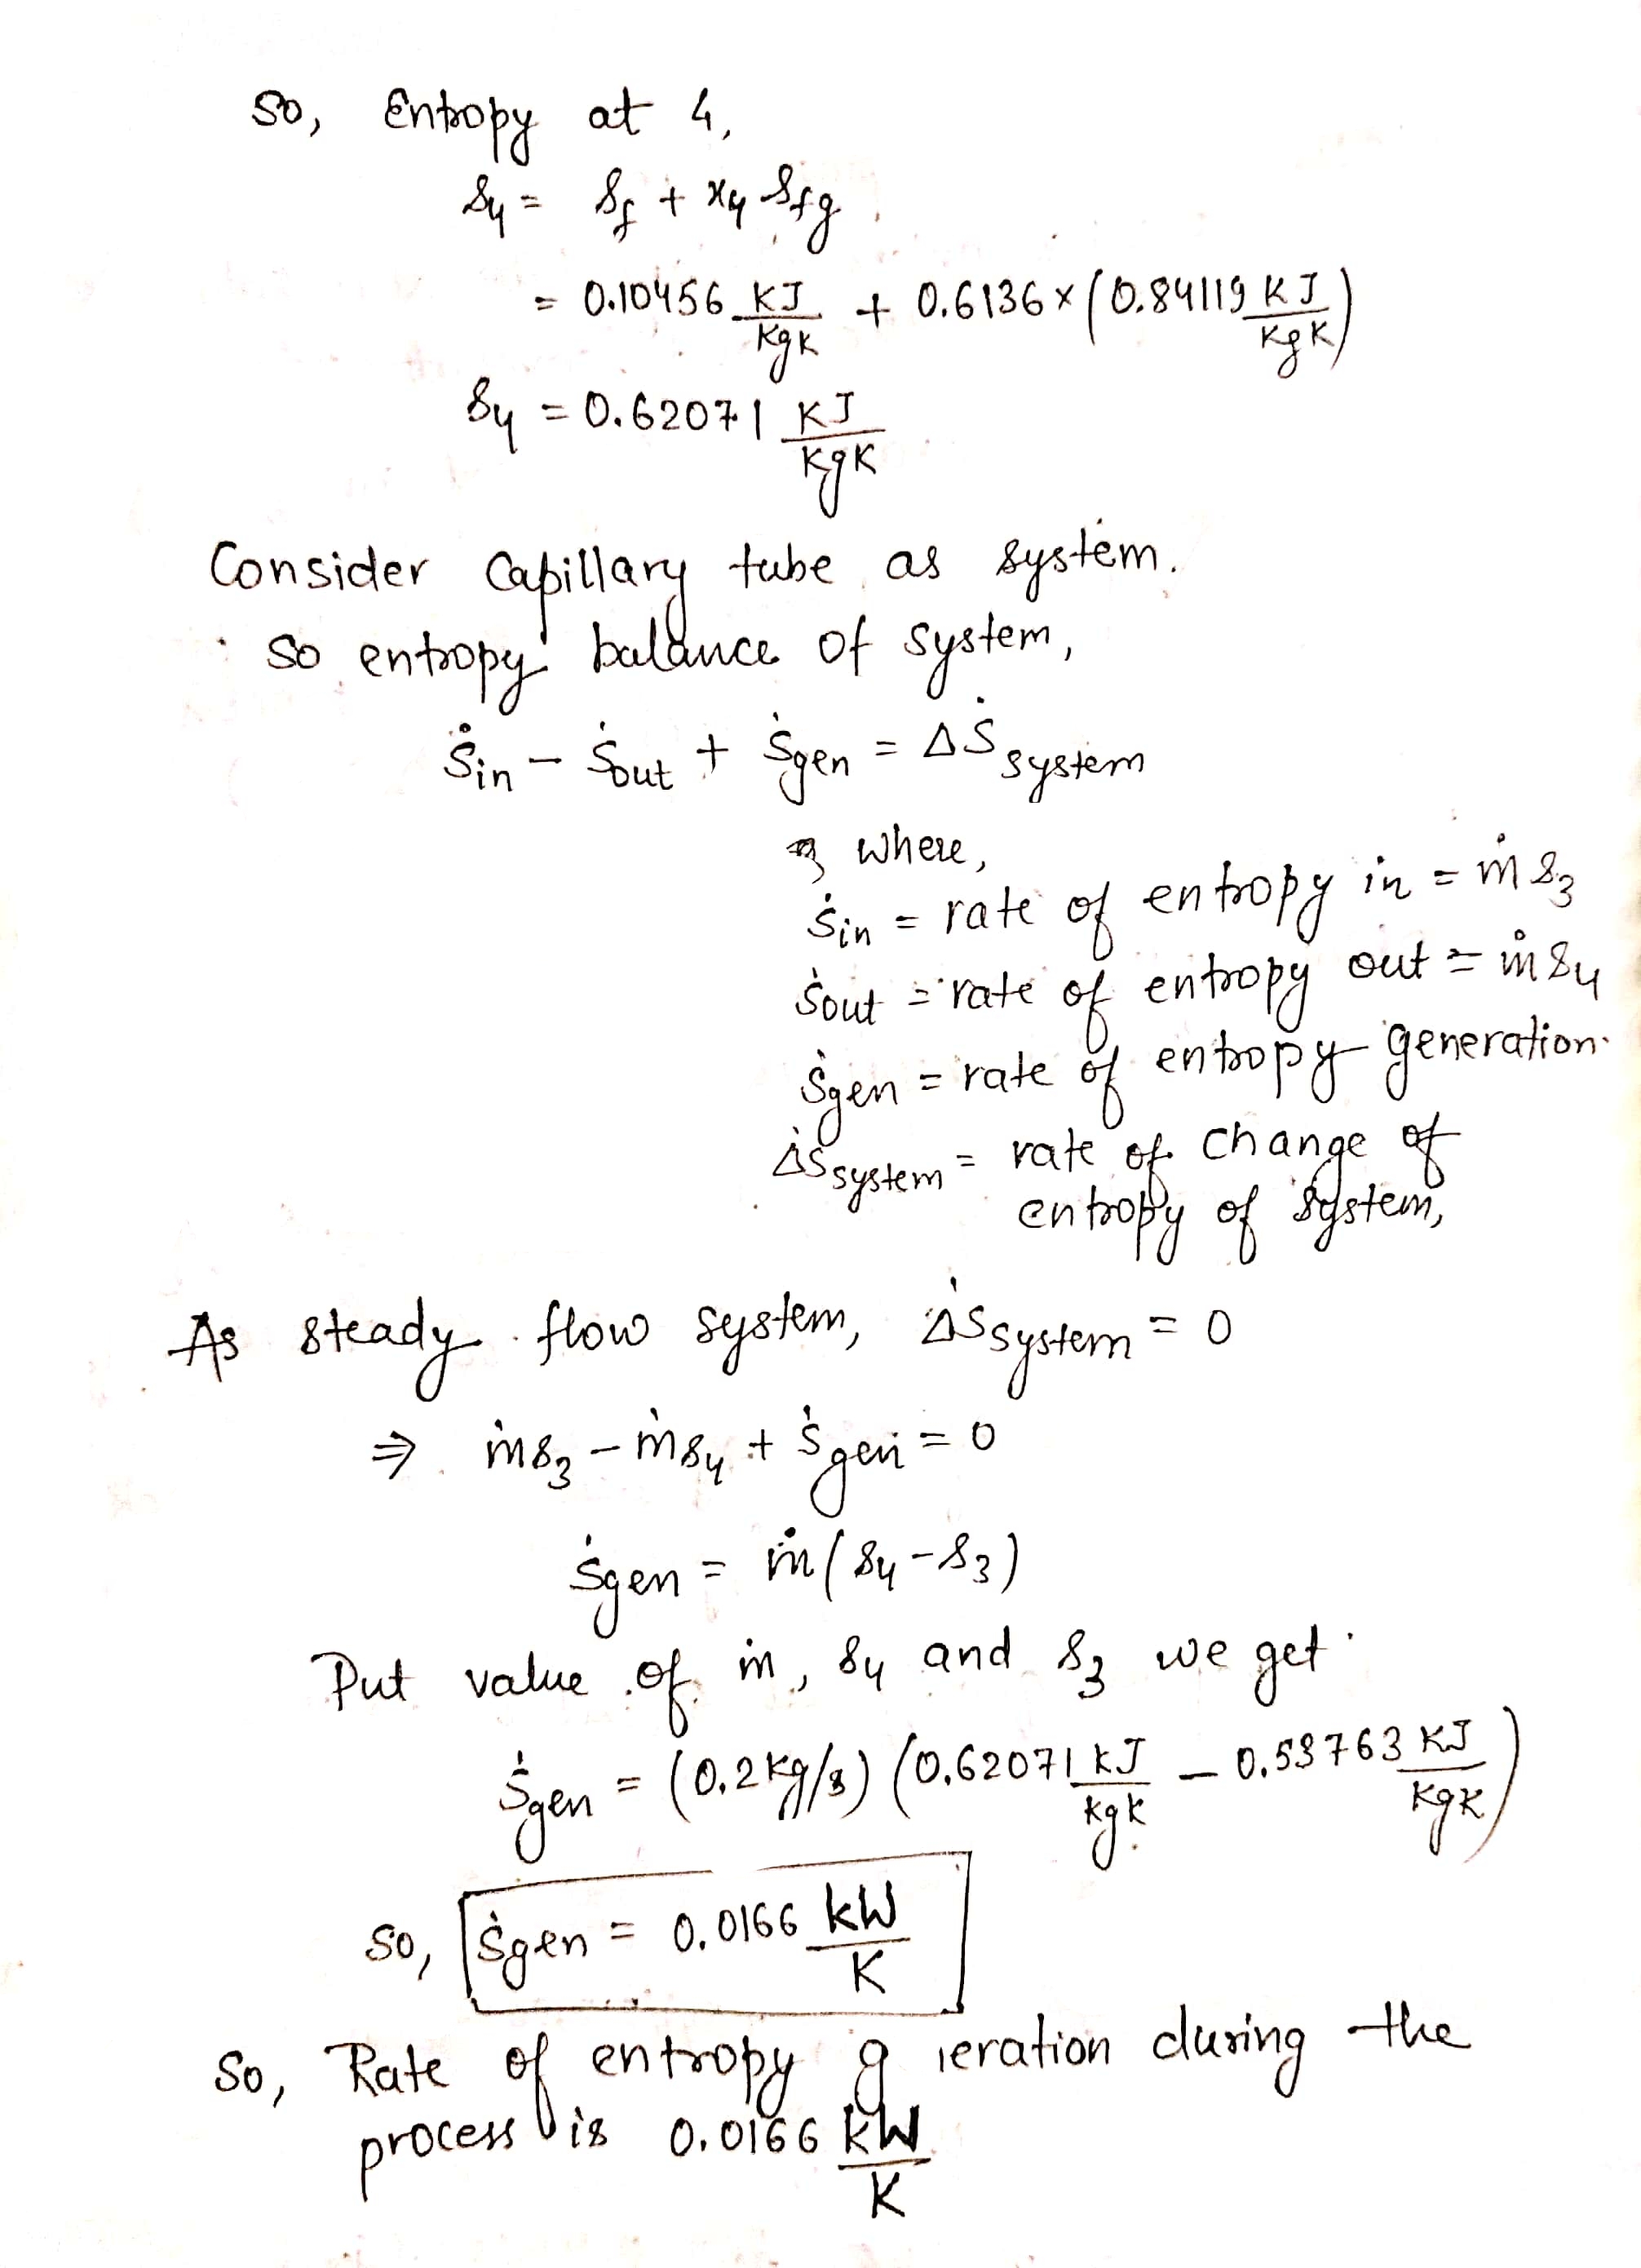 So, Entropy at 4,
s₄ = s_f + x₄ s_fg
= 0.10456 KJ/KgK + 0.6136 × (0.84119 KJ/KgK)
s₄ = 0.62071 KJ/KgK
Consider Capillary tube as system.
So entropy balance of system,
Ṡin − Ṡout + Ṡgen = ΔṠsystem
where,
Ṡin = rate of entropy in = ṁs₃
Ṡout = rate of entropy out = ṁs₄
Ṡgen = rate of entropy generation
ΔṠsystem = rate of change of
entropy of system,
As steady flow system, ΔṠsystem = 0
⇒ ṁs₃ − ṁs₄ + Ṡgen = 0
Ṡgen = ṁ(s₄ − s₃)
Put value of ṁ, s₄ and s₃ we get
Ṡgen = (0.2 Kg/s) (0.62071 KJ/KgK − 0.53763 KJ/KgK)
So, Ṡgen = 0.0166 kW/K
So, Rate of entropy g ieration during the
process is 0.0166 kW/K